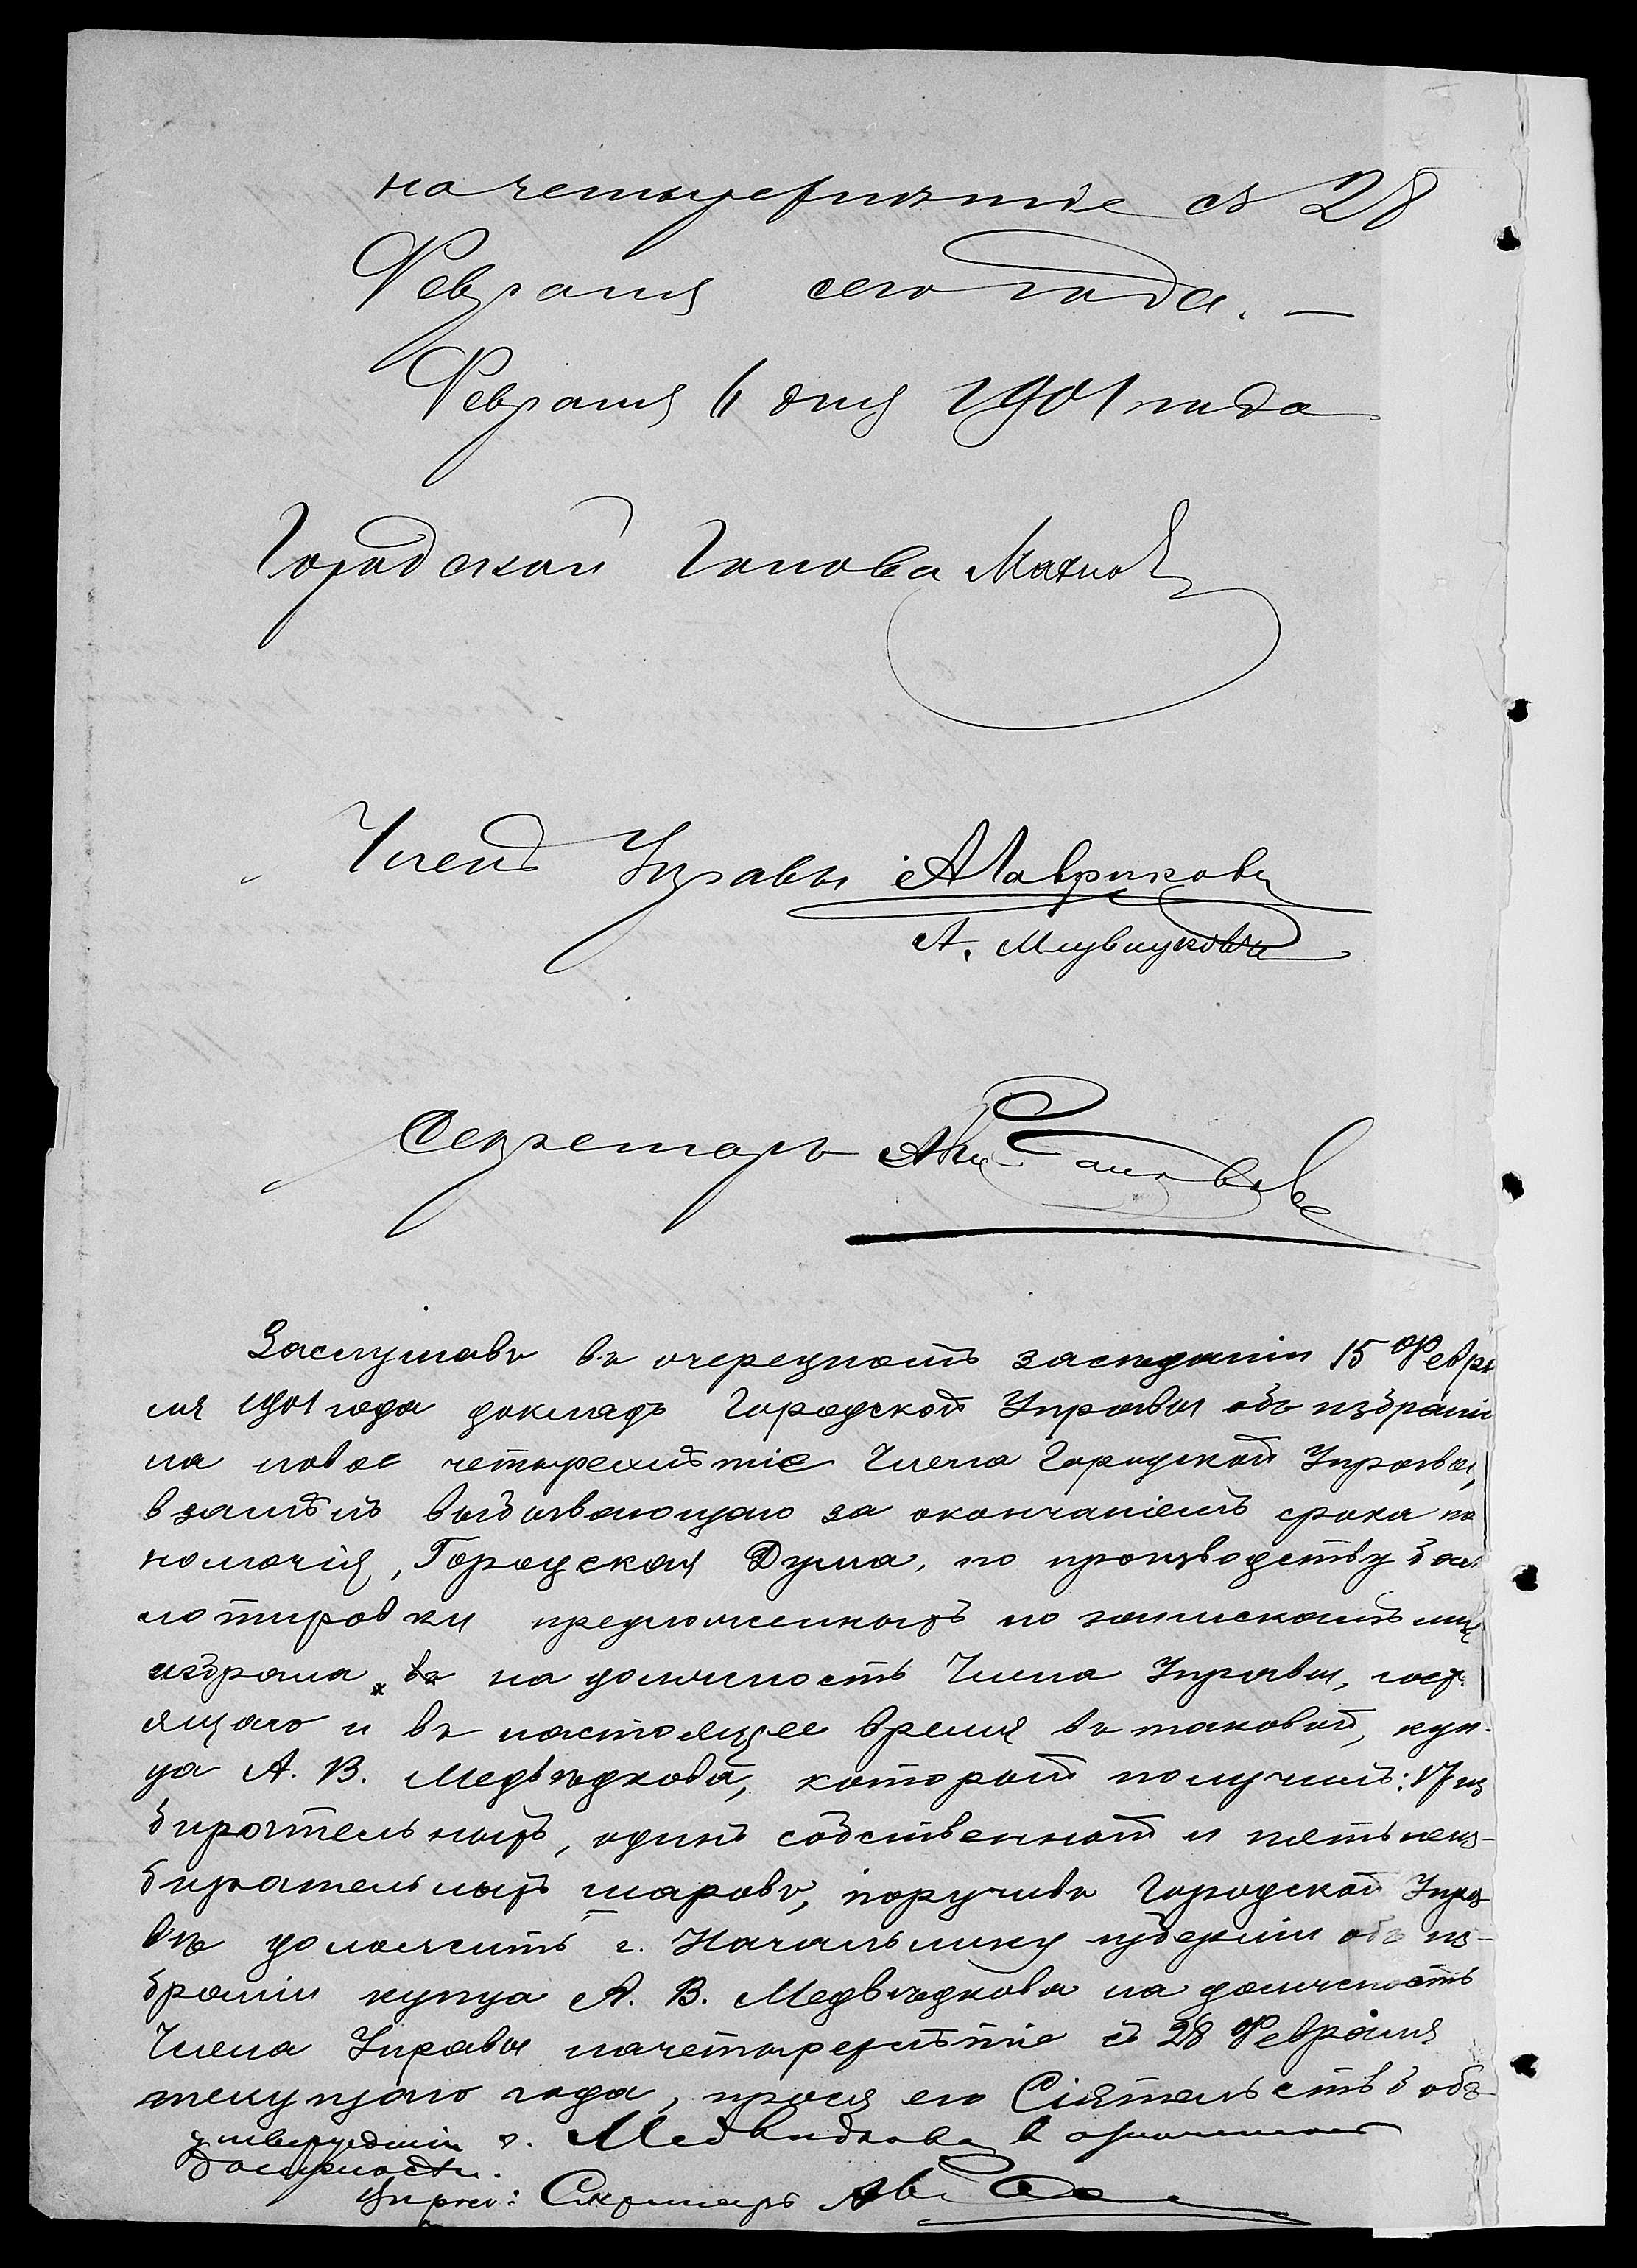 на четырехлѣтіе съ 28
Февраля сего года. —
Февраля 6 дня 1901 года
Городской Голова
Членъ Управы А Лавриковъ
А. Медвѣдковъ
Секретарь
Заслушавъ въ очередномъ засѣданіи 15 Февра
ля 1901 года докладъ Городской Управы объ избраніи
на новое четырехлѣтіе Члена Городской Управы,
взамѣнъ выбывающаго за окончаніемъ срока по
номочія, Городская Дума, по производству бал
лотировки предложенныхъ по запискамъ лицъ
избрала на должность Члена Управы, состо
ящаго и въ настоящее время въ таковой, куп-
ца А. В. Медвѣдкова, который получилъ: 17 из
бирательныхъ, одинъ собственный и пять неиз-
бирательныхъ шаровъ, поручивъ Городской Упра
вѣ доложить г. Начальнику губерніи объ из-
браніи купца А. В. Медвѣдкова на должность
Члена Управы на четырехлѣтіе съ 28 Февраля
текущаго года, прося его Сіятельство объ
утвержденіи г. Медвѣдкова в
должности.
Секретарь